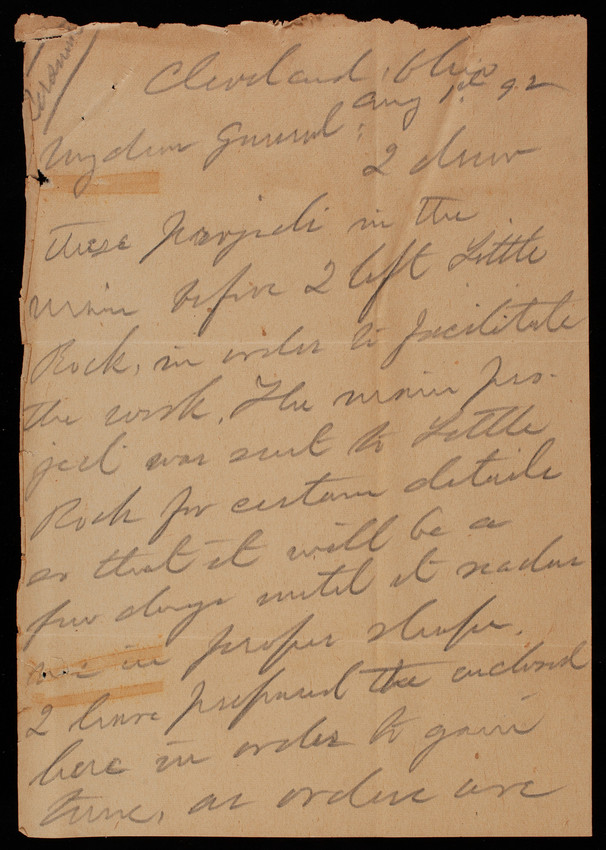 Personal
Cleveland, Ohio
Aug 1st 92
My dear General:
I drew
these projects in the
main before I left Little
Rock, in order to facilitate
the work. The main pro-
ject was sent to Little
Rock for certain details
so that it will be a
few days until it reaches
in proper shape.
I have prepared the enclosed
here in order to gain
time, as orders are